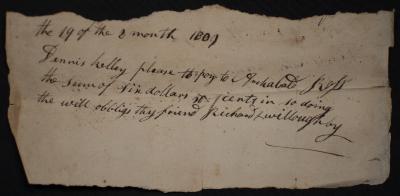 the 19 of the 8 month 1801
Dennis Kelley please to pay to Archabald
the sum of six dollars cents in so doing
the will obblige thy friend Richard Willoughby